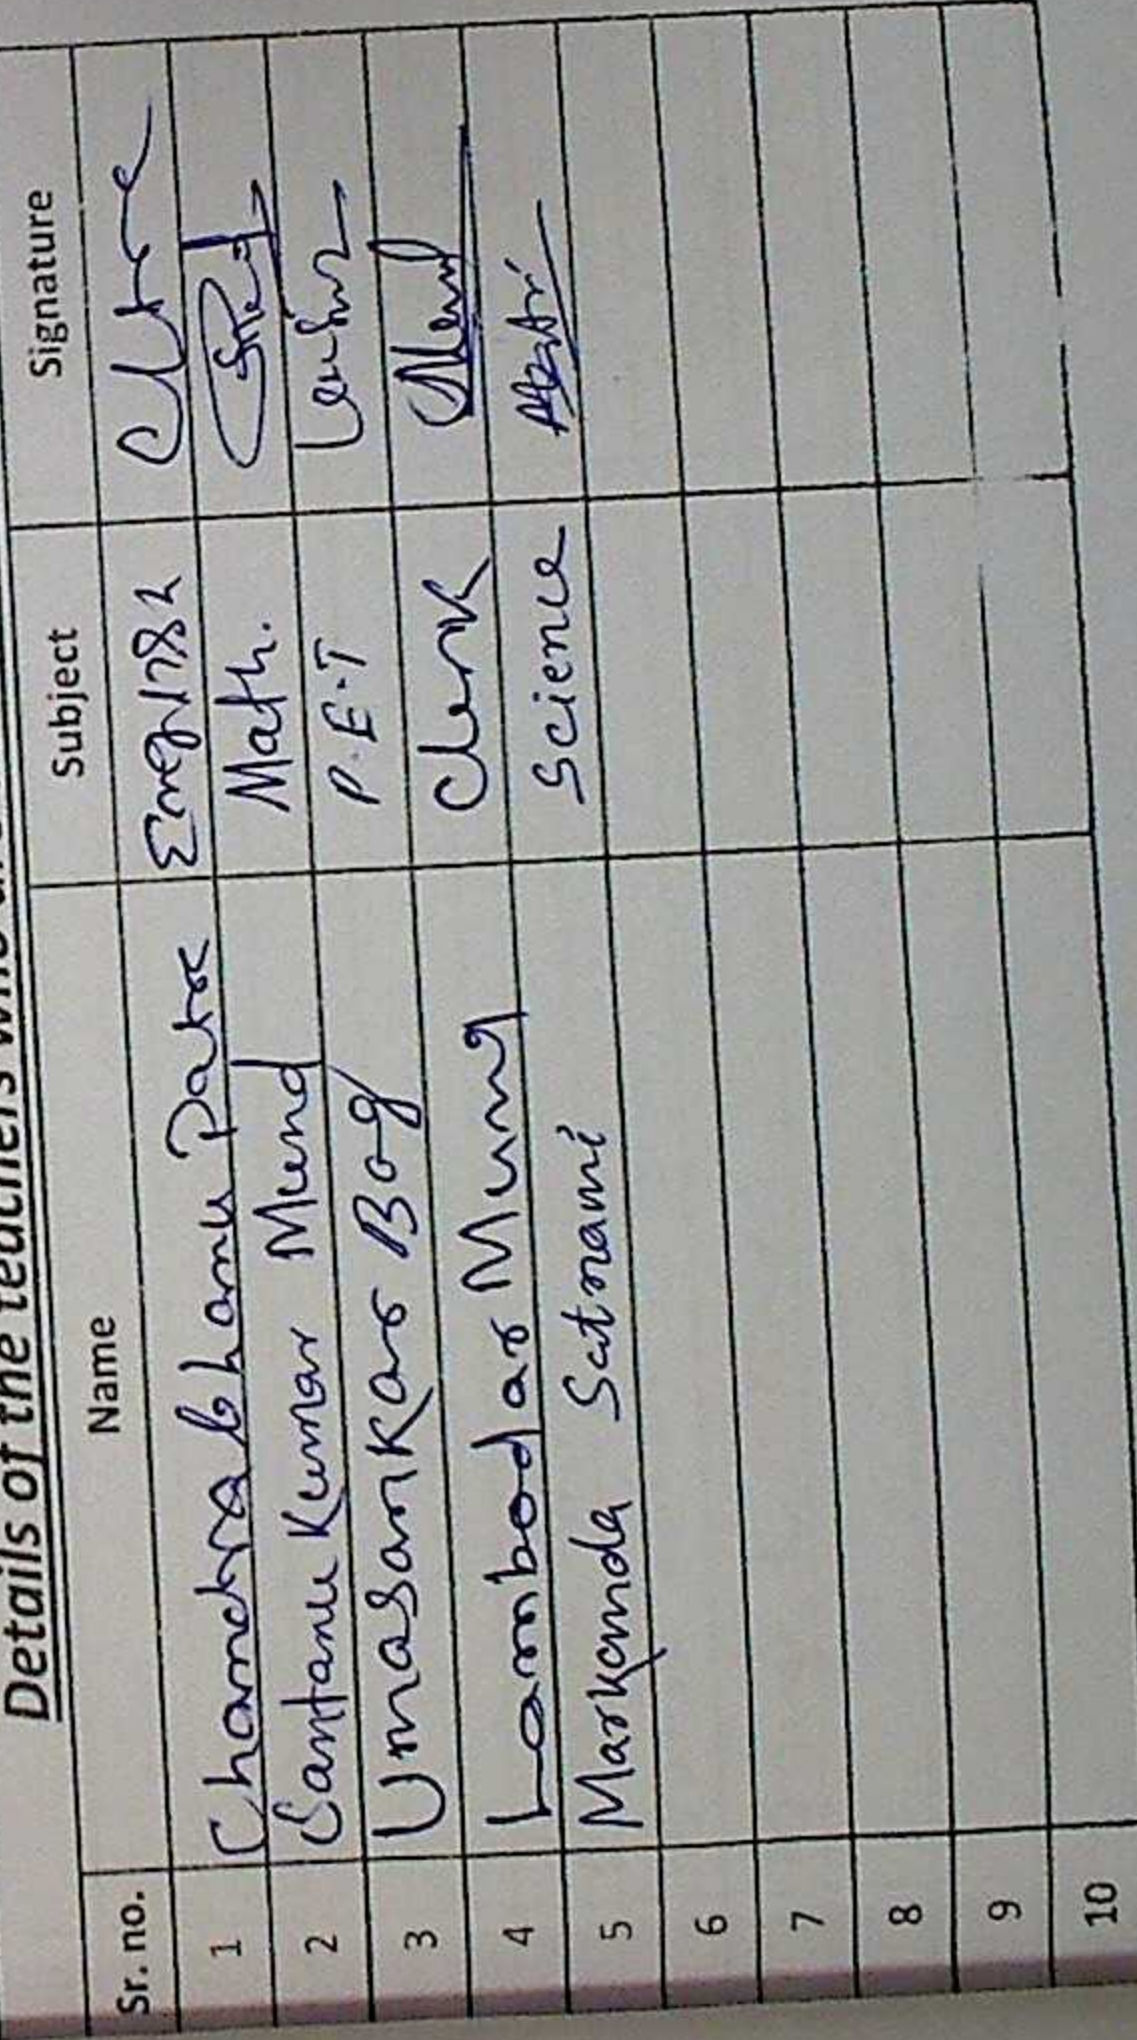 Details of the teachers who
Sr. no. Name Subject Signature
1 Chandrabhanu Patra English
2 Santanu Kumar Mund Math.
3 Umasankar Bag P.E.T
4 Lambodar Mung Clerk
5 Markanda Satnami Science
6
7
8
9
10